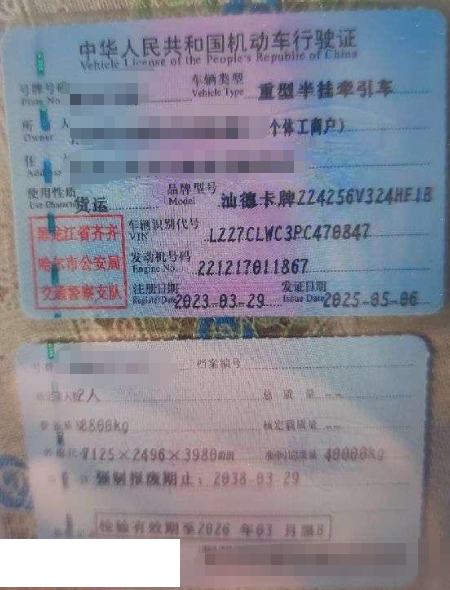 中华人民共和国机动车行驶证
Vehicle License of the People's Republic of China
号牌号码 车辆类型 重型半挂牵引车
Plate No. Vehicle Type
所 人 个体工商户）
Owner
住
使用性质 货运 品牌型号 汕德卡牌ZZ4256V324HF1B
Use Character Model
黑龙江省齐齐 车辆识别代号
VIN LZZ7CLWC3PC470847
哈尔市公安局 发动机号码 221217011867
Engine No.
交通警察支队 注册日期 2023-03-29 发证日期 2025-05-06
Register Date Issue Date
档案编号
人 2人 总质量 --
8800kg 核定载质量 --
7125×2496×3980 40000kg
强制报废期止: 2038-03-29
检验有效期至2026 年03 月